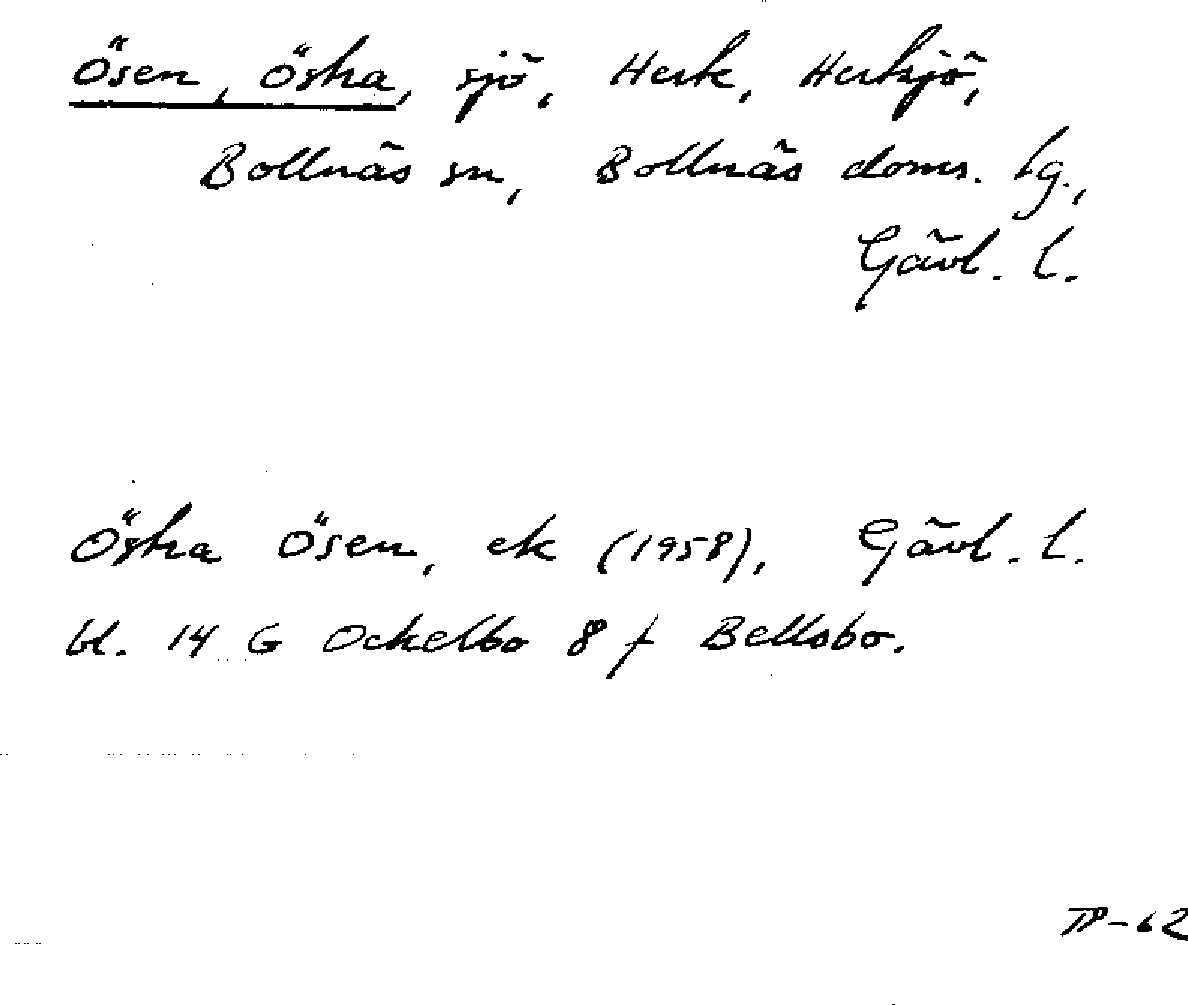 Ösen, Östra, sjö, Herte, Hertsjö,
Bollnäs sn, Bollnäs doms. lg.,
Gävl. l.
Östra Ösen, ek (1958), Gävl. l.
bl. 14 G Ockelbo 8 f Bellsbo.
TP-62